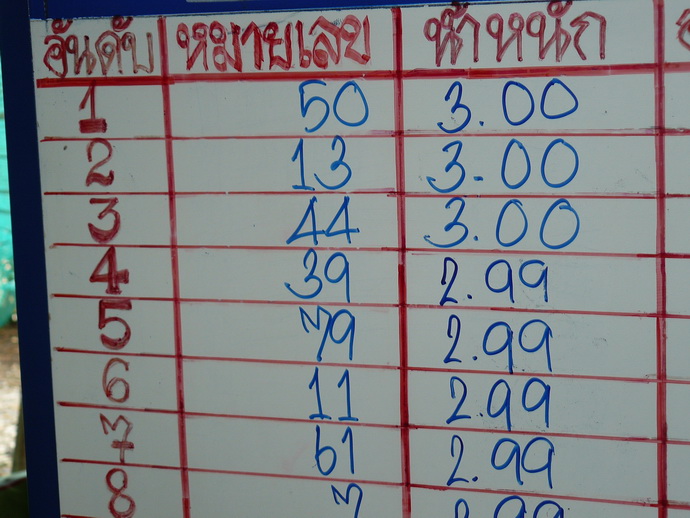 อันดับ หมายเลข น้ำหนัก
1 50 3.00
2 13 3.00
3 44 3.00
4 39 2.99
5 79 2.99
6 11 2.99
7 61 2.99
8 7 2.99